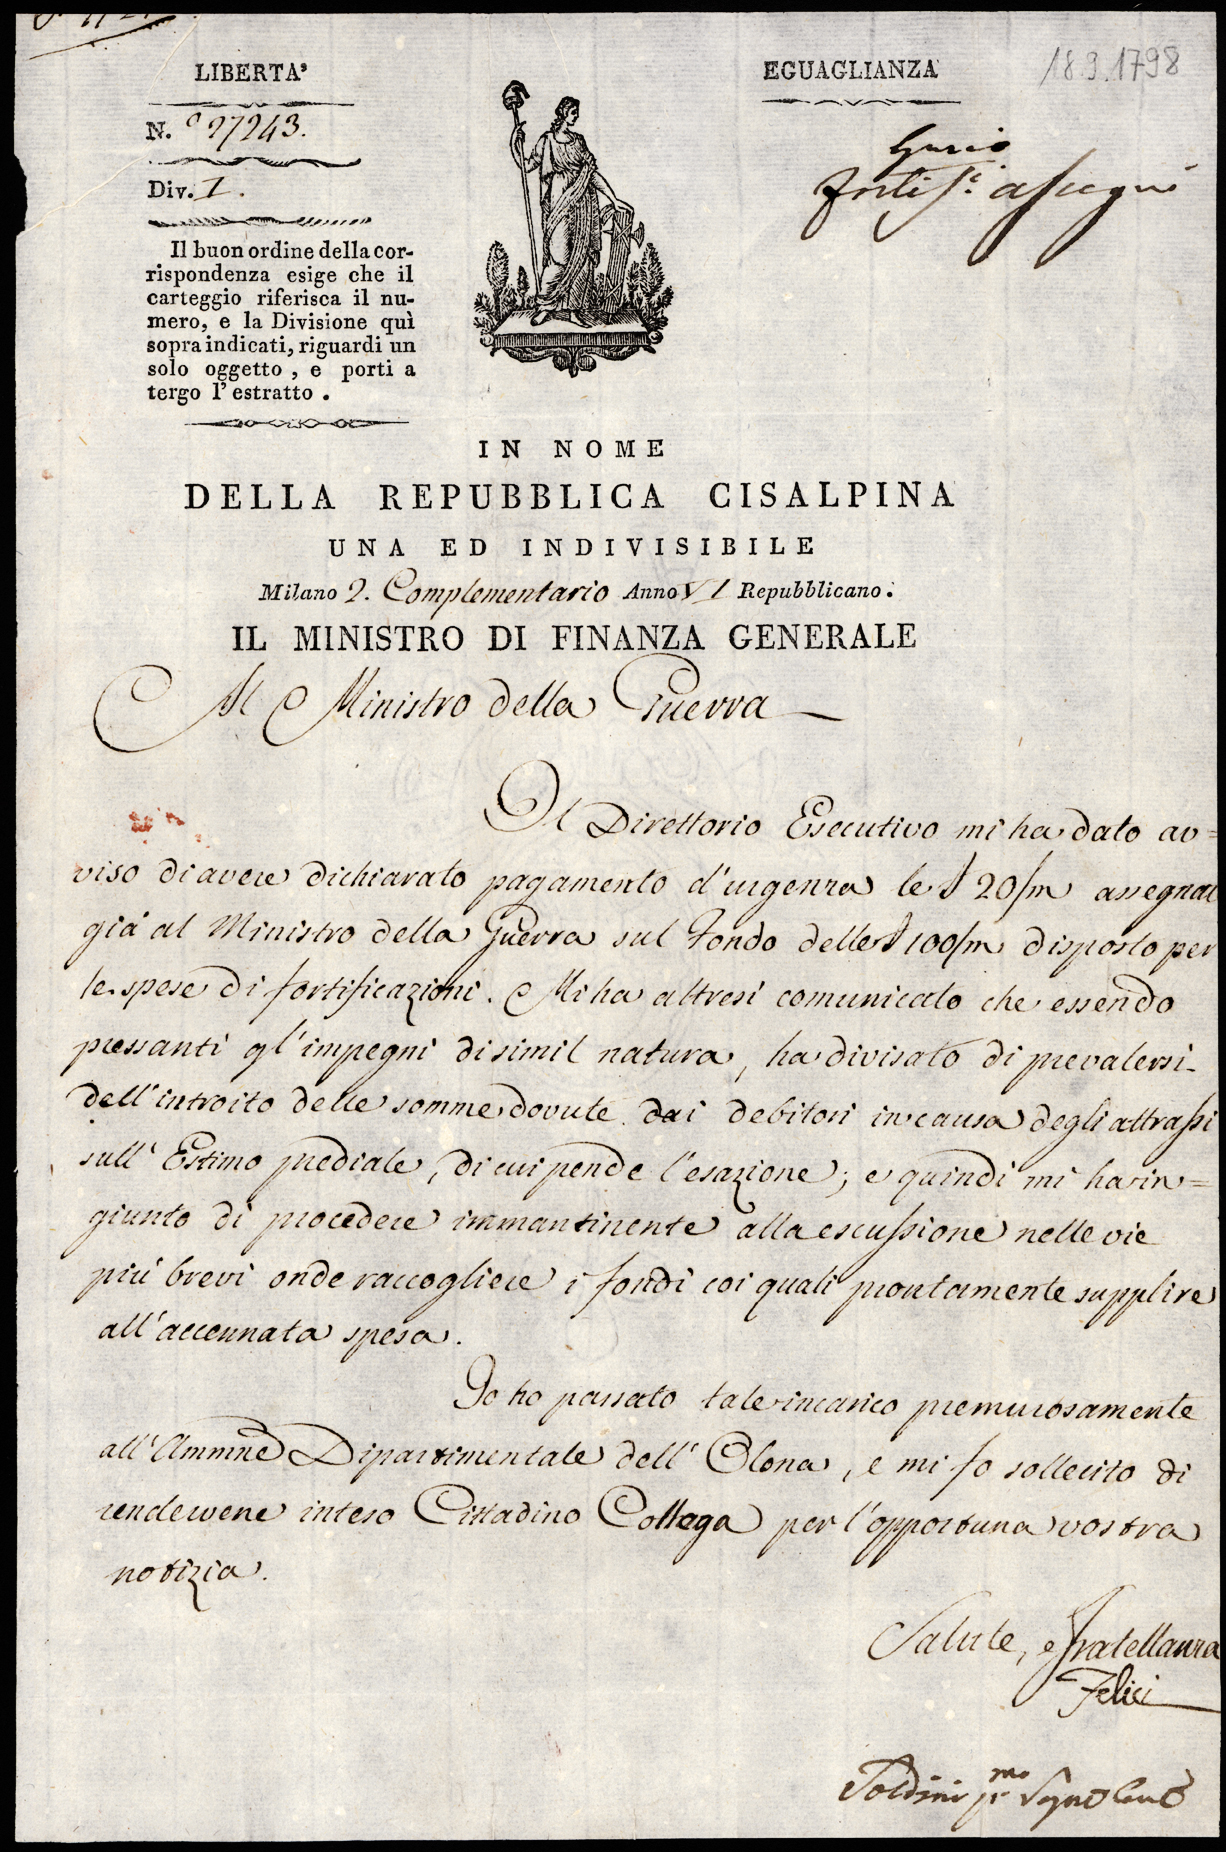 LIBERTA'
EGUAGLIANZA
18.9.1798
N.º 27243.
Div. I.
Il buon ordine della cor-
rispondenza esige che il
carteggio riferisca il nu-
mero, e la Divisione quì
sopra indicati, riguardi un
solo oggetto, e porti a
tergo l'estratto.
IN NOME
DELLA REPUBBLICA CISALPINA
UNA ED INDIVISIBILE
Milano 2. Complementario Anno VI Repubblicano.
IL MINISTRO DI FINANZA GENERALE
Al Ministro della Guerra
Il Direttorio Esecutivo mi ha dato av=
viso di avere dichiarato pagamento d'urgenza le 20/m assegnate
già al Ministro della Guerra sul Fondo delle 100/m disposto per
le spese di fortificazioni. Mi ha altresì comunicato che essendo
pressanti gl'impegni di simil natura, ha divisato di prevalersi
dell'introito delle somme dovute dai debitori in causa degli attrassi
sull'Estimo prediale, di cui pende l'esazione; e quindi mi ha in=
giunto di procedere immantinente alla escussione nelle vie
più brevi onde raccogliere i fondi coi quali prontamente supplire
all'accennata spesa.
Io ho passato tale incarico premurosamente
all'Ammne Dipartimentale dell'Olona, e mi fo sollecito di
rendervene inteso Cittadino Collega per l'opportuna vostra
notizia.
Salute, e fratellanza
Felici